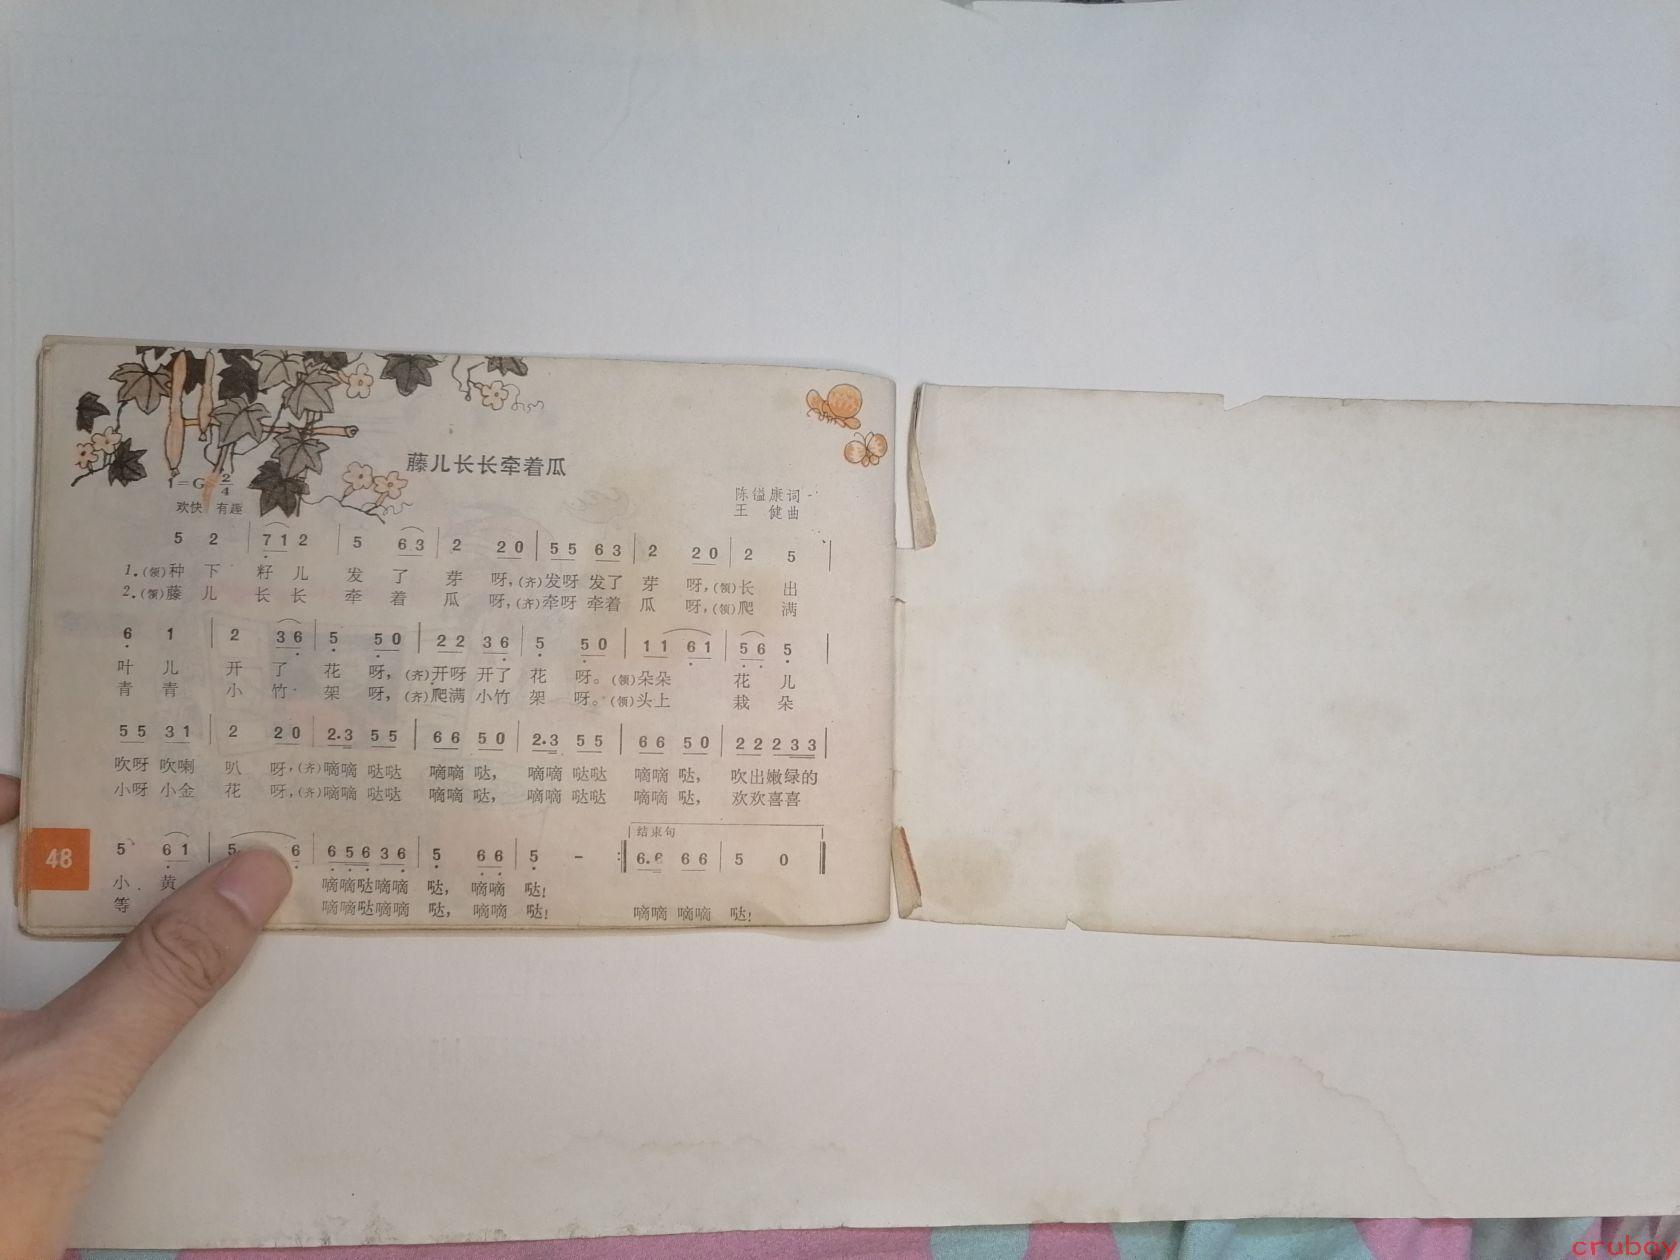 藤儿长长牵着瓜
1=G 2/4
欢快 有趣
陈镒康词
王 健曲
5 2 | 7 1 2 | 5 6 3 | 2 2 0 | 5 5 6 3 | 2 2 0 | 2 5 |
1.(领)种 下 籽 儿 发 了 芽 呀,(齐)发呀 发了 芽 呀,(领)长 出
2.(领)藤 儿 长 长 牵 着 瓜 呀,(齐)牵呀 牵着 瓜 呀,(领)爬 满
6 1 | 2 3 6 | 5 5 0 | 2 2 3 6 | 5 5 0 | 1 1 6 1 | 5 6 5 |
叶 儿 开 了 花 呀,(齐)开呀 开了 花 呀。(领)朵朵 花 儿
青 青 小 竹 架 呀,(齐)爬满 小竹 架 呀。(领)头上 栽 朵
5 5 3 1 | 2 2 0 | 2.3 5 5 | 6 6 5 0 | 2.3 5 5 | 6 6 5 0 | 2 2 2 3 3 |
吹呀 吹喇 叭 呀,(齐)嘀嘀 哒哒 嘀嘀 哒, 嘀嘀 哒哒 嘀嘀 哒, 吹出嫩绿的
小呀 小金 花 呀,(齐)嘀嘀 哒哒 嘀嘀 哒, 嘀嘀 哒哒 嘀嘀 哒, 欢欢喜喜
结束句
5 6 1 | 5 6 | 6 5 6 3 6 | 5 6 6 | 5 - :‖ 6.6 6 6 | 5 0 ‖
小 黄 嘀嘀哒嘀嘀 哒, 嘀嘀 哒!
等 嘀嘀哒嘀嘀 哒, 嘀嘀 哒! 嘀嘀 嘀嘀 哒!
48
cruboy